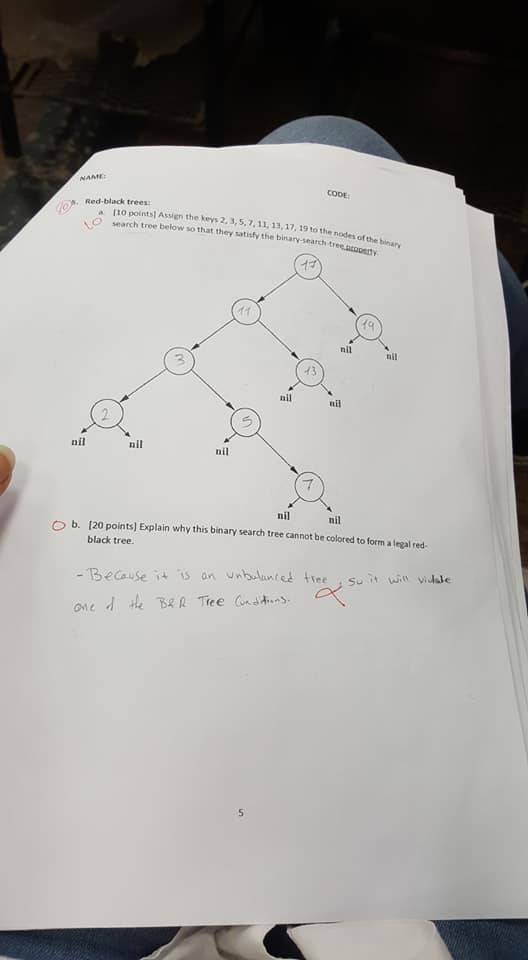 NAME:
CODE:
10 8. Red-black trees:
10 a. [10 points] Assign the keys 2, 3, 5, 7, 11, 13, 17, 19 to the nodes of the binary
search tree below so that they satisfy the binary-search-tree property.
17
11
19
3
13
nil
nil
2
5
nil
nil
nil
nil
nil
7
nil
nil
0 b. [20 points] Explain why this binary search tree cannot be colored to form a legal red-
black tree.
- Because it is an unbalanced tree, so it will violate
one of the B&R Tree Conditions.
5